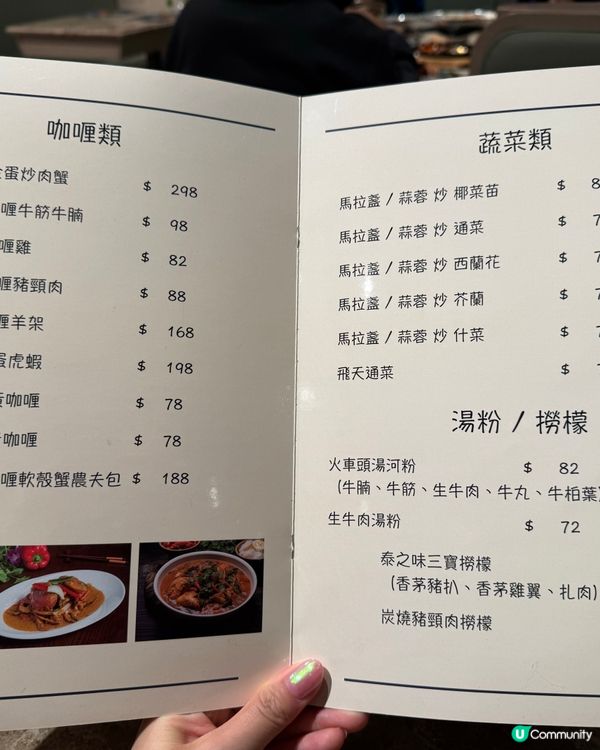 咖喱類
蛋炒肉蟹 $ 298
喱牛筋牛腩 $ 98
喱雞 $ 82
喱豬頸肉 $ 88
喱羊架 $ 168
蛋虎蝦 $ 198
咖喱 $ 78
咖喱 $ 78
喱軟殼蟹農夫包 $ 188
蔬菜類
馬拉盞 / 蒜蓉 炒 椰菜苗 $ 8
馬拉盞 / 蒜蓉 炒 通菜 $ 7
馬拉盞 / 蒜蓉 炒 西蘭花 $
馬拉盞 / 蒜蓉 炒 芥蘭 $
馬拉盞 / 蒜蓉 炒 什菜 $
飛天通菜 $
湯粉 / 撈檬
火車頭湯河粉 $ 82
(牛腩、牛筋、生牛肉、牛丸、牛柏葉)
生牛肉湯粉 $ 72
泰之味三寶撈檬
(香茅豬扒、香茅雞翼、扎肉)
炭燒豬頸肉撈檬
U Community